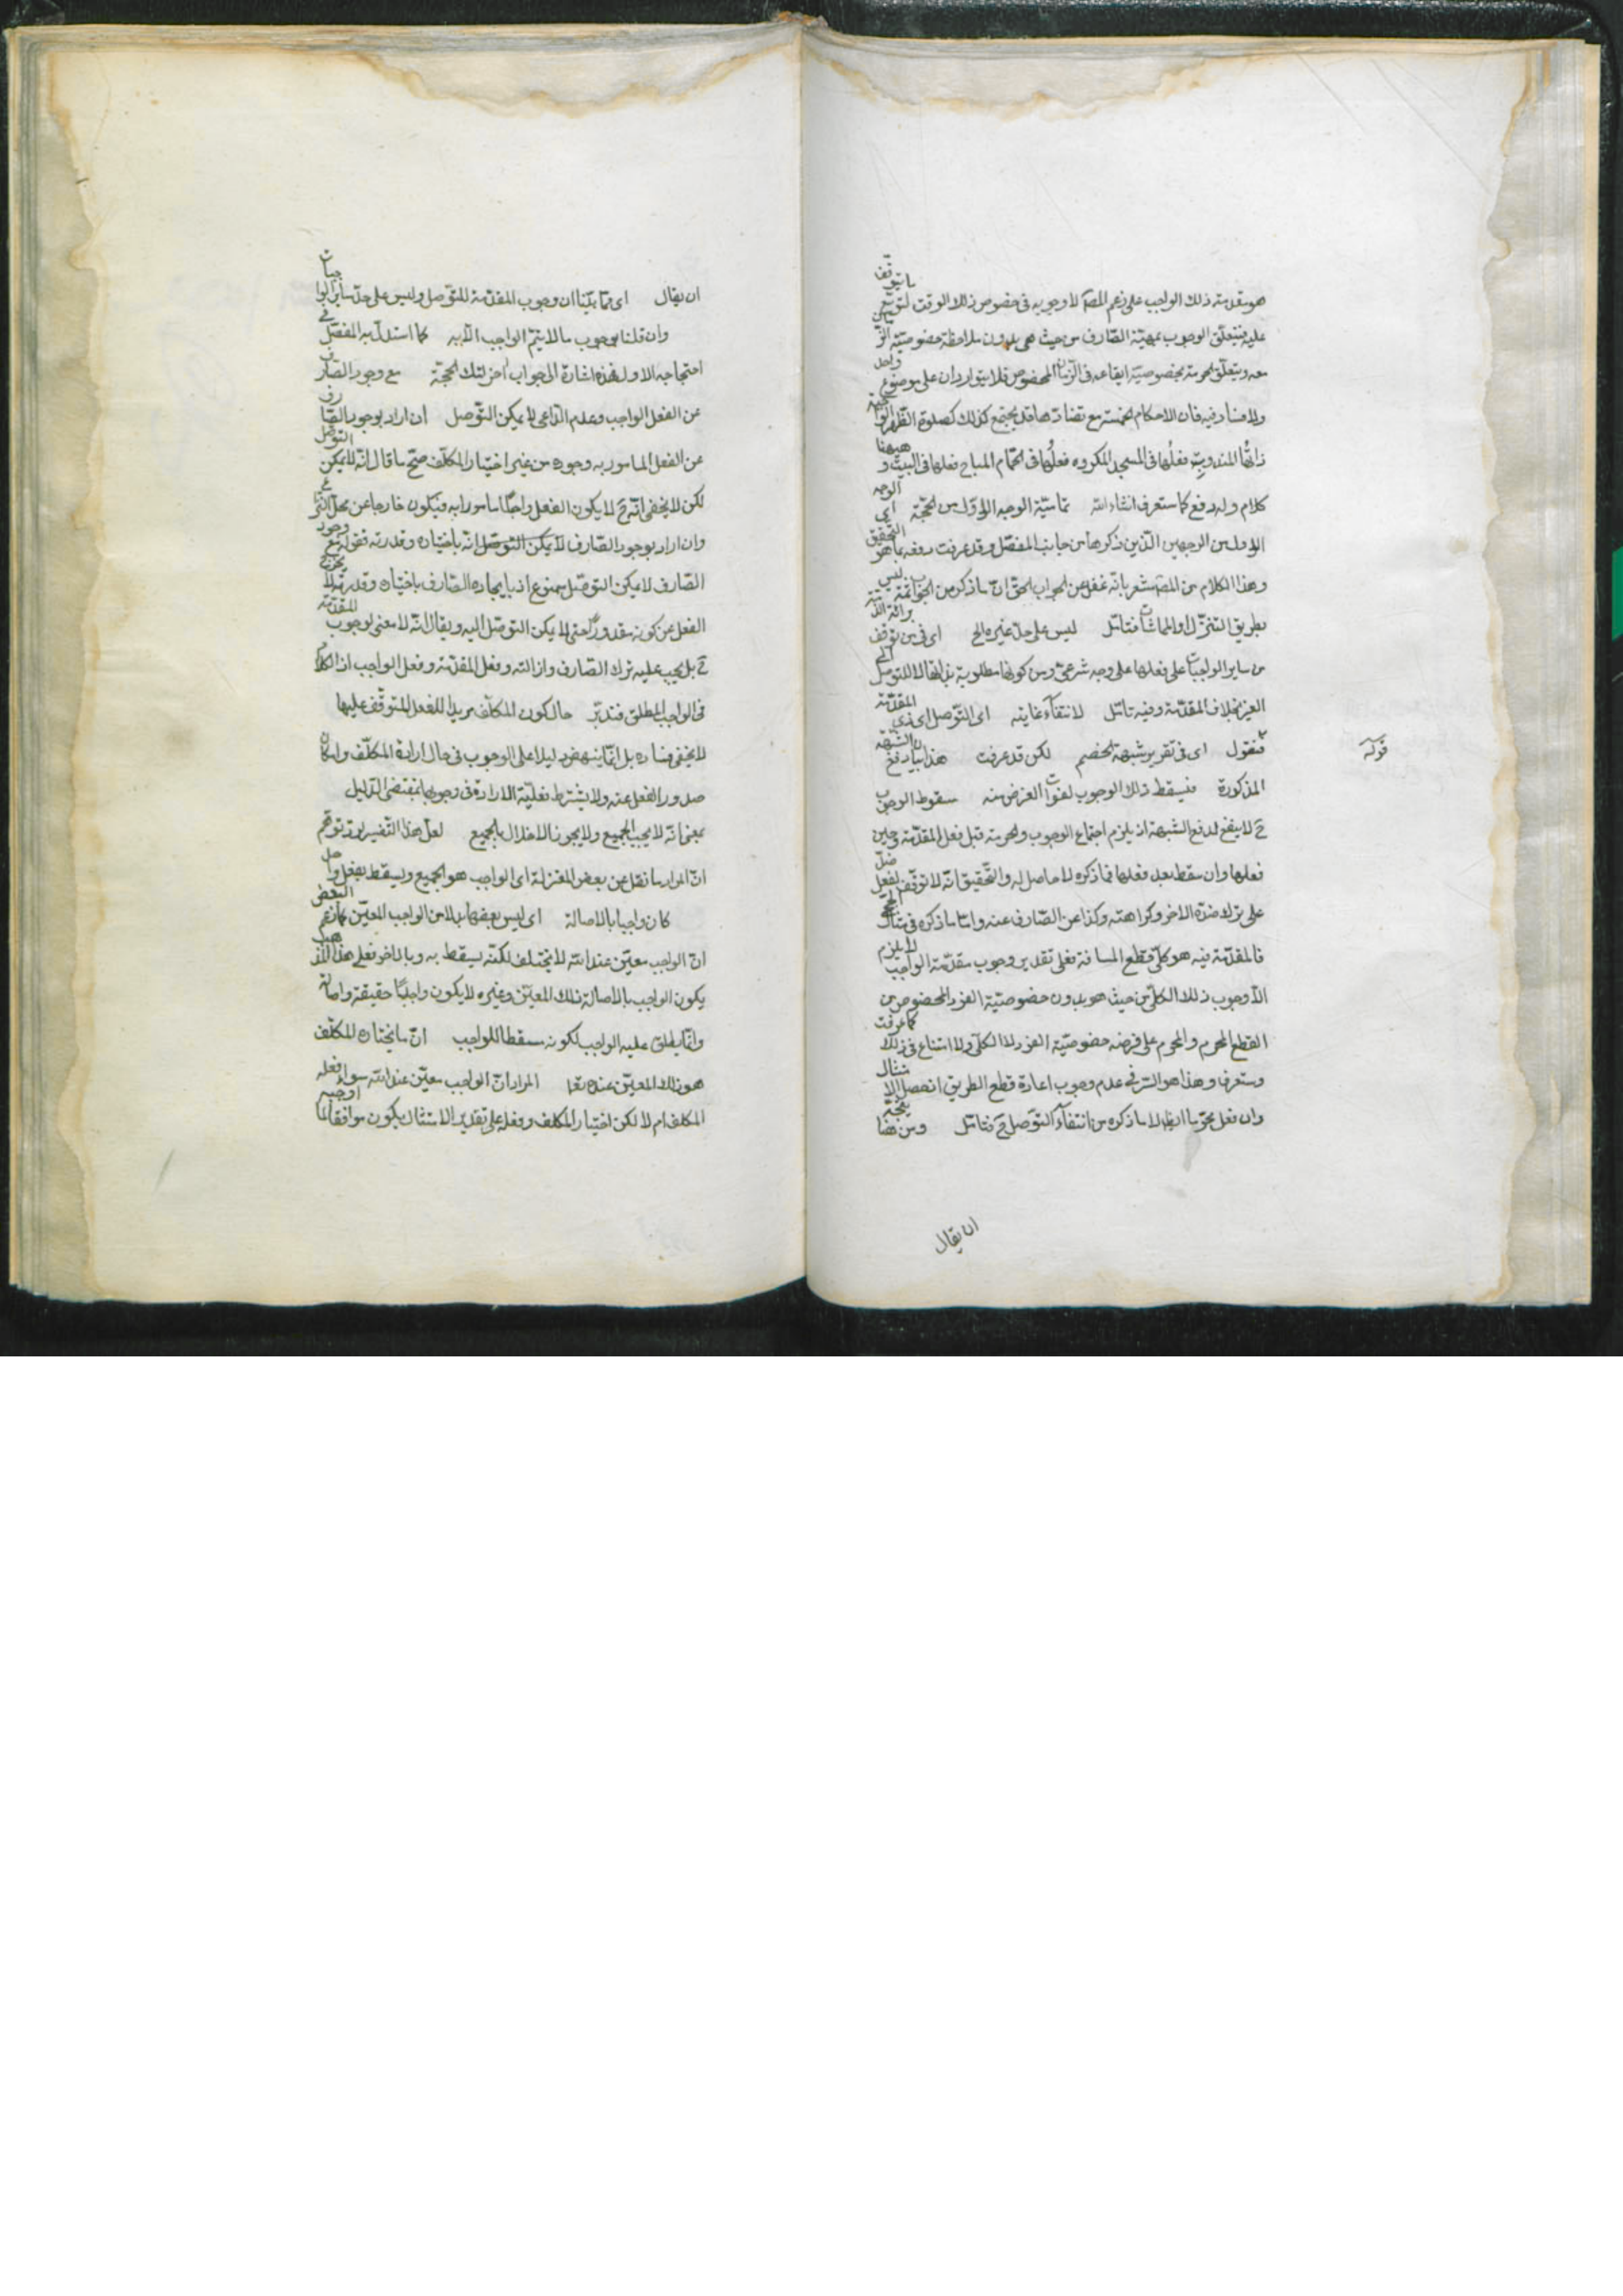 هو مقدمة ذلك الواجب على زعم المصـ لا وجوبه فى خصوص ذلك الوقت لتوقع ما يتوقف
عليه فيتعلق الوجوب بمهيّة الصّارف من حيث هى بدون ملاحظة خصوصيّة
معه ويتعلّق الحرمة بخصوصيّة ايقاعه فى الزّمان المخصوص فلا يتواردان على موضوع واحد
ولا فساد فيه فان الاحكام الخمسة مع تضادّها قد يجتمع كذلك كصلوة الظّهر الواجبة
ذاتها المندوب فعلها فى المسجد المكروه فعلها فى الحمّام المباح فعلها فى البيت و هيهنا
كلام وله دفع كما ستعرف انشاء الله تماميّة الوجه الاوّل من الحجّة اى الوجه
الاول من الوجهين الّذين ذكرهما من جانب المفصّل وقد عرفت دفعه بما هو التّحقيق
وهذا الكلام من المصـ مشعر بانّه غفل عن الجواب الحقّ انّ ما ذكر من الجواب ليس
بطريق التنزّل او المماشات فتأمّل ليس على حدّ غيره الخ اى فى من توقف
من ساير الواجبات على فعلها على وجه شرعىّ ومن كونها مطلوبة بذاتها لا للتوصل الى
الغير بخلاف المقدّمة وفيه تأمّل لانتفاء غايته اى التّوصل اى ذى المقدّمة
فنقول اى فى تقرير شبهة الخصم لكن قد عرفت هذا بيان دفع الشّبهة
قوله
المذكورة فيسقط ذلك الوجوب لفوات الغرض منه سقوط الوجوب
ح لا ينفع لدفع الشبهة اذ يلزم اجتماع الوجوب والحرمة قبل فعل المقدّمة وحين
فعلها وان سقط بعد فعلها فما ذكره لا حاصل له والتّحقيق انّه لا توقّف لفعل
على ترك ضدّه الاخر وكراهته وكذا عن الصّارف عنه وامّا ما ذكره فى مثال الحج
فالمقدّمة فيه هو كلّى قطع المسافة فعلى تقدير وجوب مقدّمة الواجب لا يلزم
الّا وجوب ذلك الكلّى من حيث هو بدون خصوصيّة الفرد المخصوص من
القطع المحرم والمحرم على فرضه خصوصيّة الفرد لا الكلّى ولا امتناع فى ذلك كما عرفت
وستعرف وهذا هو السّر فى عدم وجوب اعادة قطع الطريق انحصل الامتثال
وان فعل محرّما ايضا لا ما ذكره من انتفاء التوّصل ح فتأمّل ومن هنا يتجه
ان يقال
ان يقال اى ممّا بيّنا ان وجوب المقدّمة للتّوصل وليس على حدّ سائر الواجبات
وان قلنا بوجوب ما لا يتمّ الواجب الّا به كما استدلّ به المفصّل فى
احتجاجه الاول فهذه اشارة الى جواب اخر لتلك الحجّة مع وجود الصّارف
عن الفعل الواجب وعدم الدّاعى لا يمكن التّوصل ان اراد بوجود الصّارف
عن الفعل المأمور به وجوده من غير اختيار المكلّف صحّ ما قال انّه لا يمكن التوصّل
لكن لا يخفى انّه ح لا يكون الفعل واجبًا مأمورا به فيكون خارجا عن محلّ النّزاع
وان اراد بوجود الصّارف لا يمكن التّوصّل انّه باختياره وقدرته فقوله مع وجود
الصّارف لا يمكن التوصّل ممنوع اذ بايجاده الصّارف باختياره وقدرته لا يخرج
الفعل عن كونه مقدورًا حتى لا يمكن التوصّل اليه ويقال انّه لا معنى لوجوب المقدّمة
ح بل يجب عليه ترك الصّارف وازالته وفعل المقدّمة وفعل الواجب اذ الكلام
فى الواجب المطلق فتدبّر حال كون المكلّف مريدا للفعل المتوقّف عليها
لا يخفى فساده بل انّما ينهض دليلا على الوجوب فى حال ارادة المكلّف وامكان
صدور الفعل عنه ولا يشترط فعليّة الارادة فى وجوبها بمقتضى الدّليل
بمعنى انّه لا يجب الجميع ولا يجوز الاخلال بالجميع لعلّ هذا التّفسير لردّ توهّم
انّ المراد ما نقل عن بعض المعتزلة اى الواجب هو الجميع ويسقط بفعل واحد
كان واجبا بالاصالة اى ليس بعضها بدلا من الواجب المعيّن كما زعم البعض
انّ الواجب معيّن عند الله لا يختلف لكنّه يسقط به وبالاخر فعلى هذا المذهب
يكون الواجب بالاصالة ذلك المعيّن وغيره لا يكون واجبًا حقيقة واصالة
وانّما يطلق عليه الواجب لكونه مسقطا للواجب انّ ما يختاره المكلّف
هو ذلك المعيّن عنده تعا المراد انّ الواجب معيّن عند الله سواء فعله
المكلف ام لا لكن اختيار المكلف وفعله على تقدير الامتثال يكون موافقا لما اوجبه